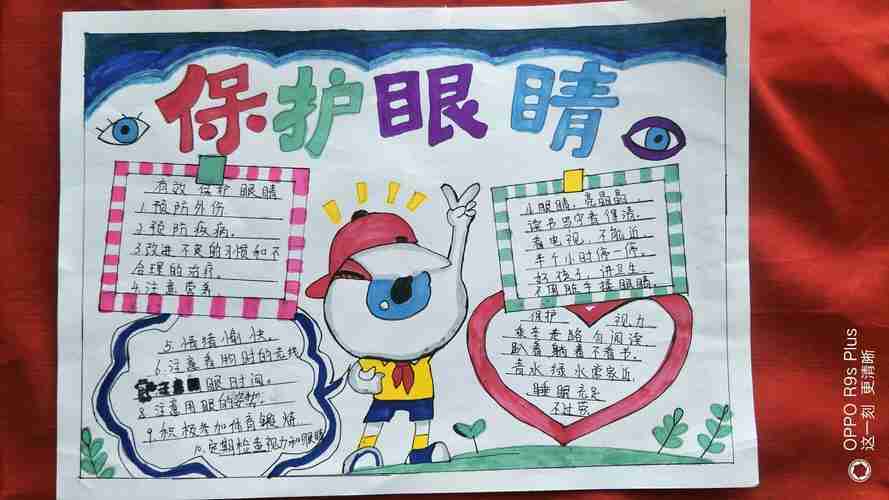 保护眼睛
有效保护眼睛
1.预防外伤
2.预防疾病.
3.改进不良的习惯和不
合理的治疗.
4.注意营养.
5.情绪愉快.
6.注意看物时的光线
眼时间.
8.注意用眼的姿势.
9.积极参加体育锻炼
10.定期检查视力和眼睛
小眼睛,亮晶晶.
读书写字看得清.
看电视,不能近.
半个小时停一停.
好孩子,讲卫生.
不用脏手揉眼睛.
保护 视力
乘车走路勿阅读
趴着躺着不看书.
青水绿水常亲近.
睡眠充足
OPPO R9s Plus
这一刻 更清晰